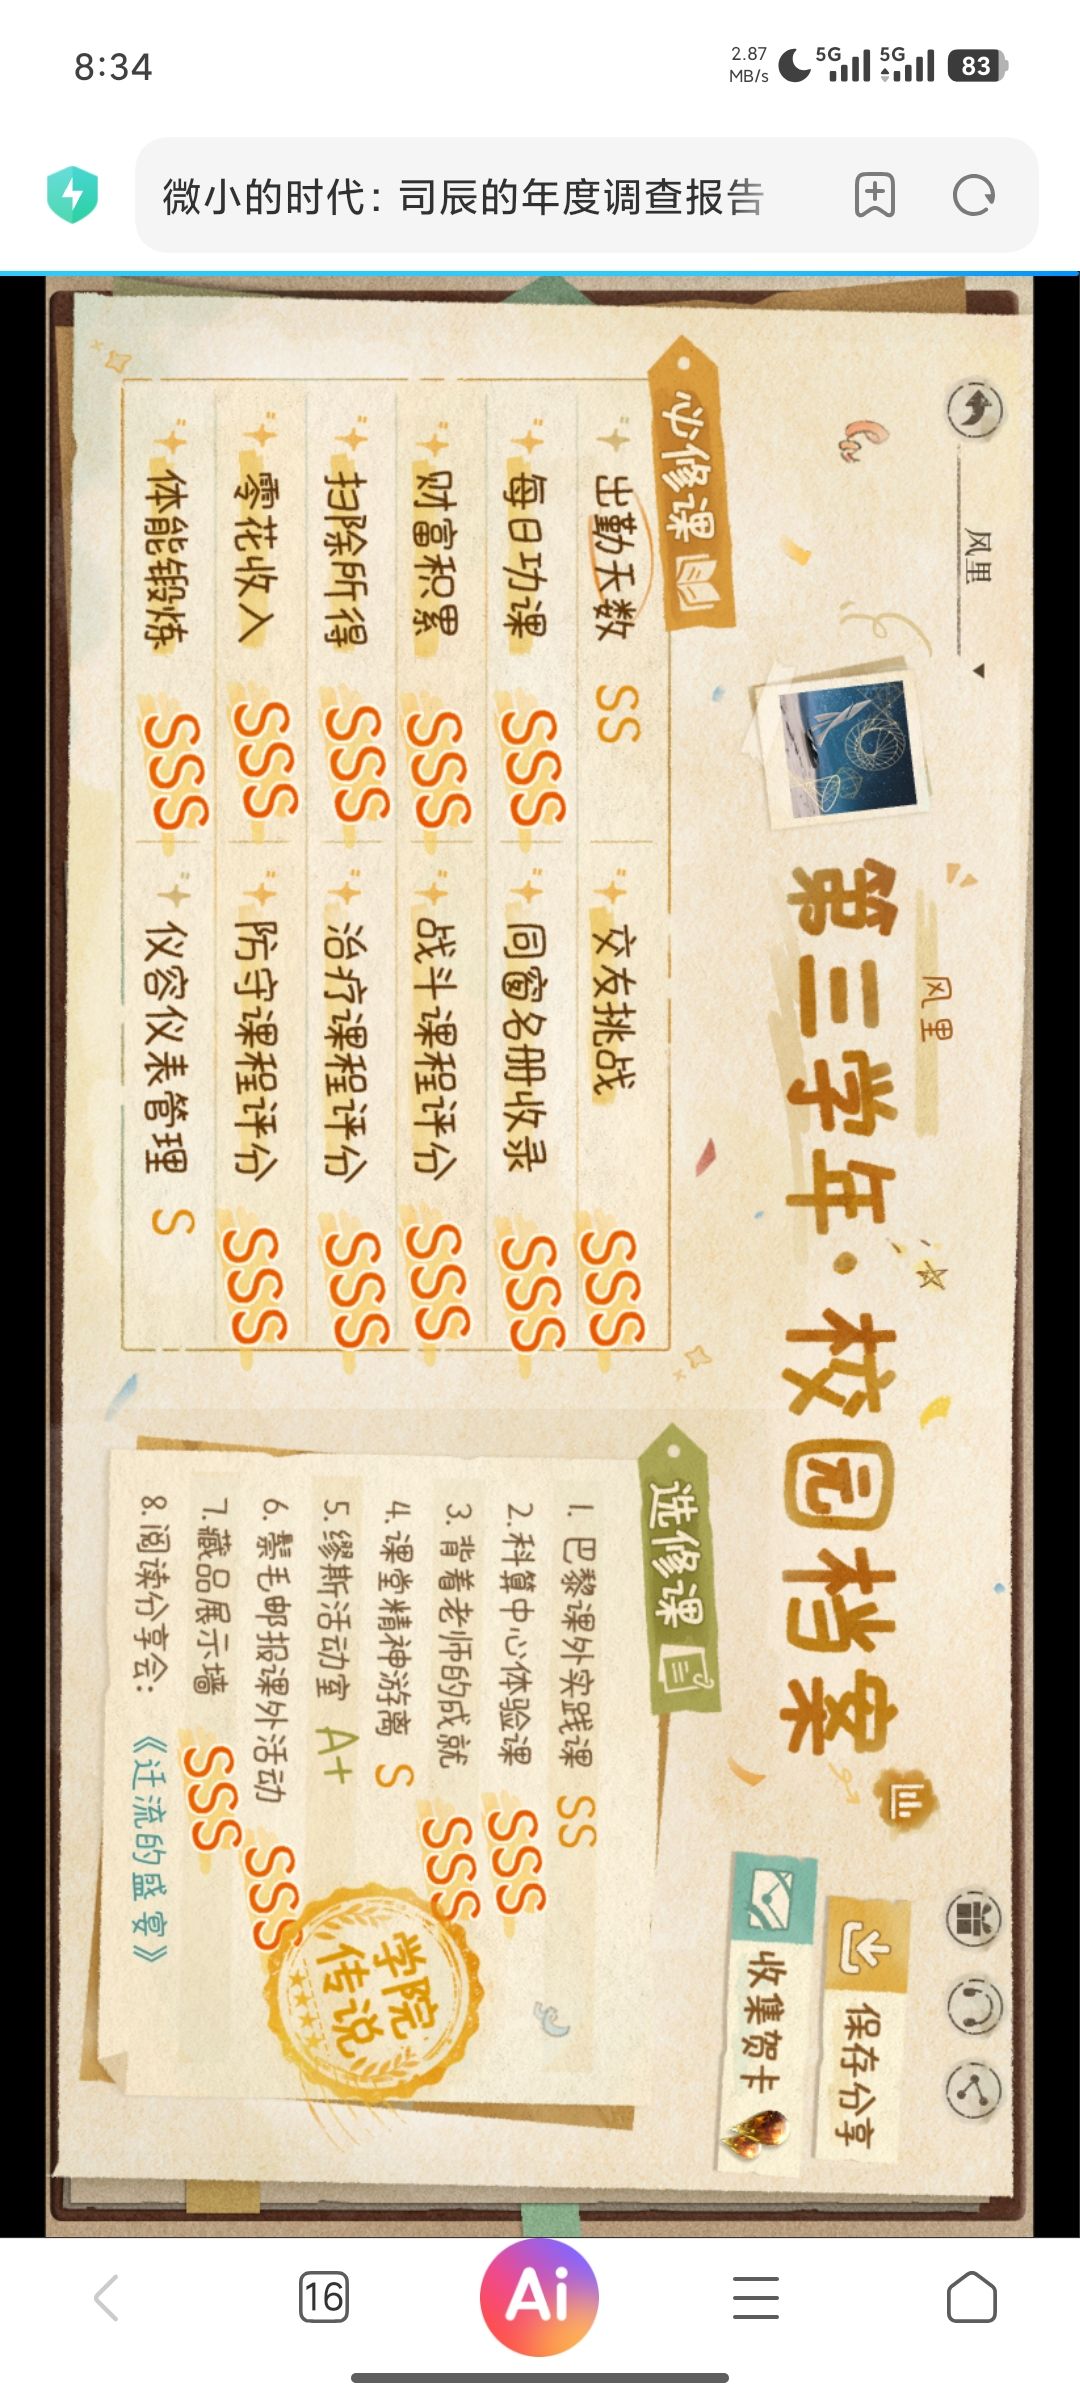 8:34
2.87
MB/s
5G
5G
83
微小的时代：司辰的年度调查报告
风里
风里
第三学年·校园档案
保存分享
收集贺卡
必修课
出勤天数 SS
交友挑战 SSS
每日功课 SSS
同窗名册收录 SSS
财富积累 SSS
战斗课程评分 SSS
扫除所得 SSS
治疗课程评分 SSS
零花收入 SSS
防守课程评分 SSS
体能锻炼 SSS
仪容仪表管理 S
选修课
1. 巴黎课外实践课 SS
2.科算中心体验课 SSS
3.背着老师的成就 SSS
4.课堂精神游离 S
5.缪斯活动室 A+
6.鬃毛邮报课外活动 SSS
7.藏品展示墙 SSS
8.阅读分享会：《迁流的盛宴》
学院
传说
16
Ai